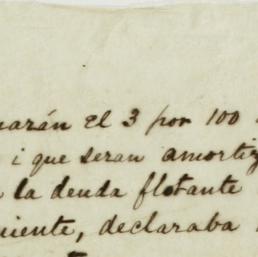 narán el 3 por 100
i que seran amortiz
la deuda flotante
uiente, declaraba